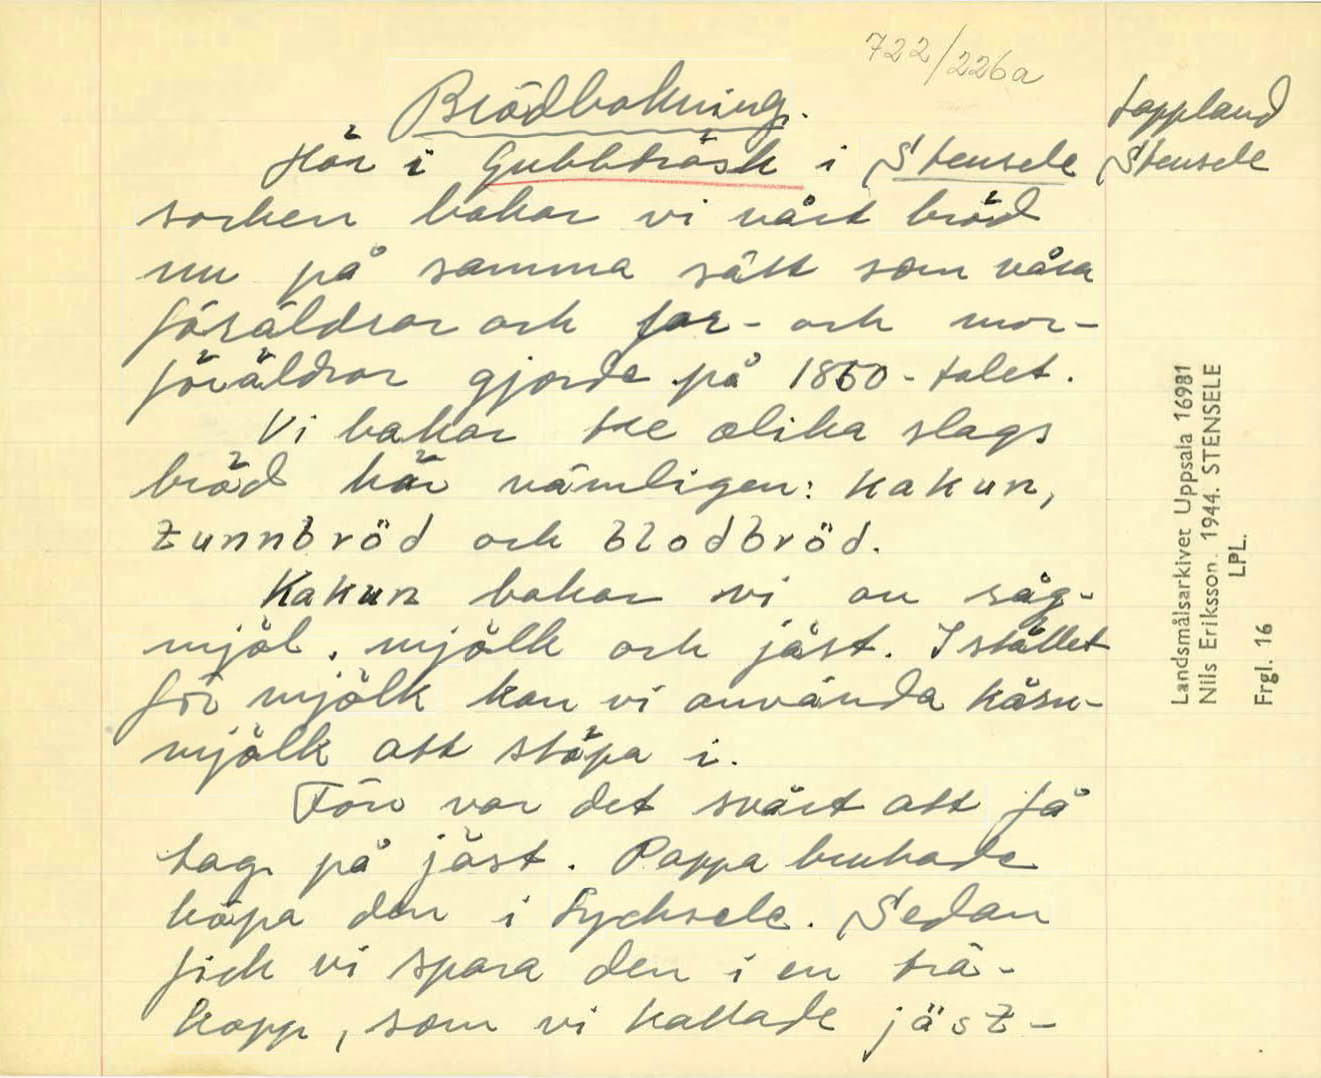 722/226a
Brödbakning.
Lappland
Här i Gubbträsk i Stensele
Stensele
socken bakar vi vårt bröd
nu på samma sätt som våra
föräldrar och far- och mor-
föräldrar gjorde på 1850-talet.
Vi bakar tre olika slags
bröd här nämligen: kakun,
tunnbröd och blodbröd.
Kakun bakar vi av råg-
mjöl, mjölk och jäst. I stället
för mjölk kan vi använda kärn-
mjölk att stöpa i.
Förr var det svårt att få
tag på jäst. Pappa brukade
köpa den i Lycksele. Sedan
fick vi spara den i en trä-
kopp, som vi kallade jäst-
Landsmålsarkivet Uppsala 16981
Nils Eriksson. 1944. STENSELE
LPL.
Frgl. 16